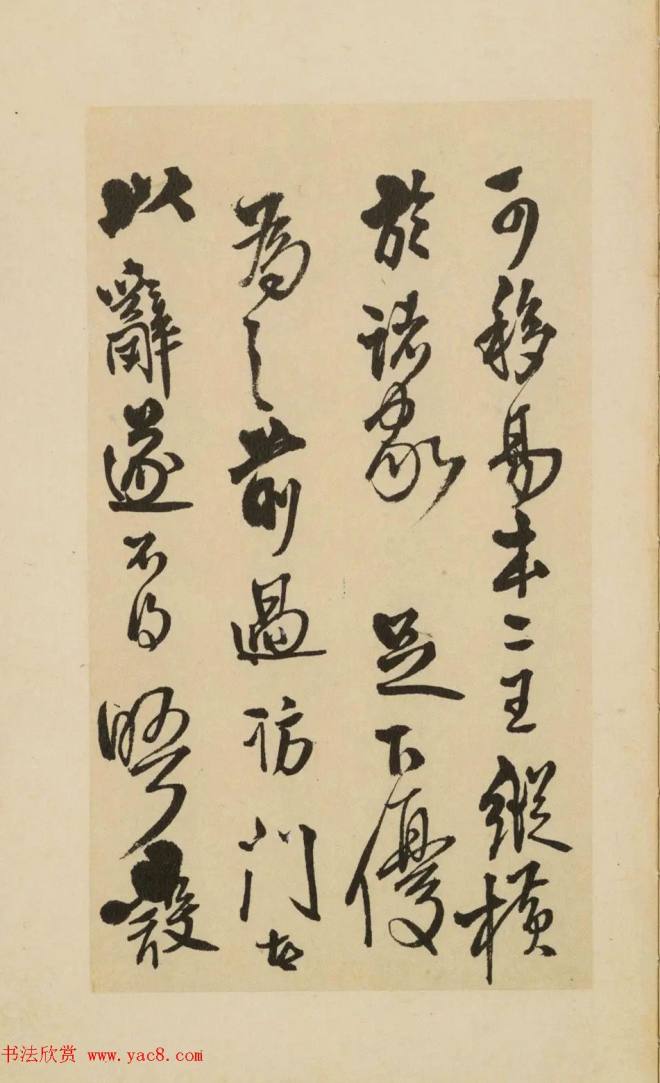 可移易本二王縱橫
於諸家 足下優
為之前過訪門者
以辭遂不得晤
书法欣赏 www.yac8.com